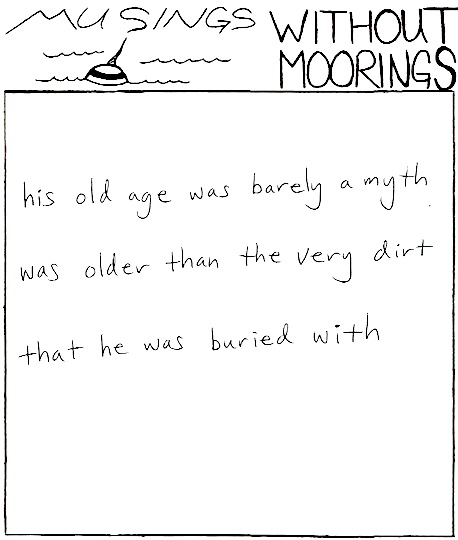 MUSINGS WITHOUT
MOORINGS
his old age was barely a myth
was older than the very dirt
that he was buried with